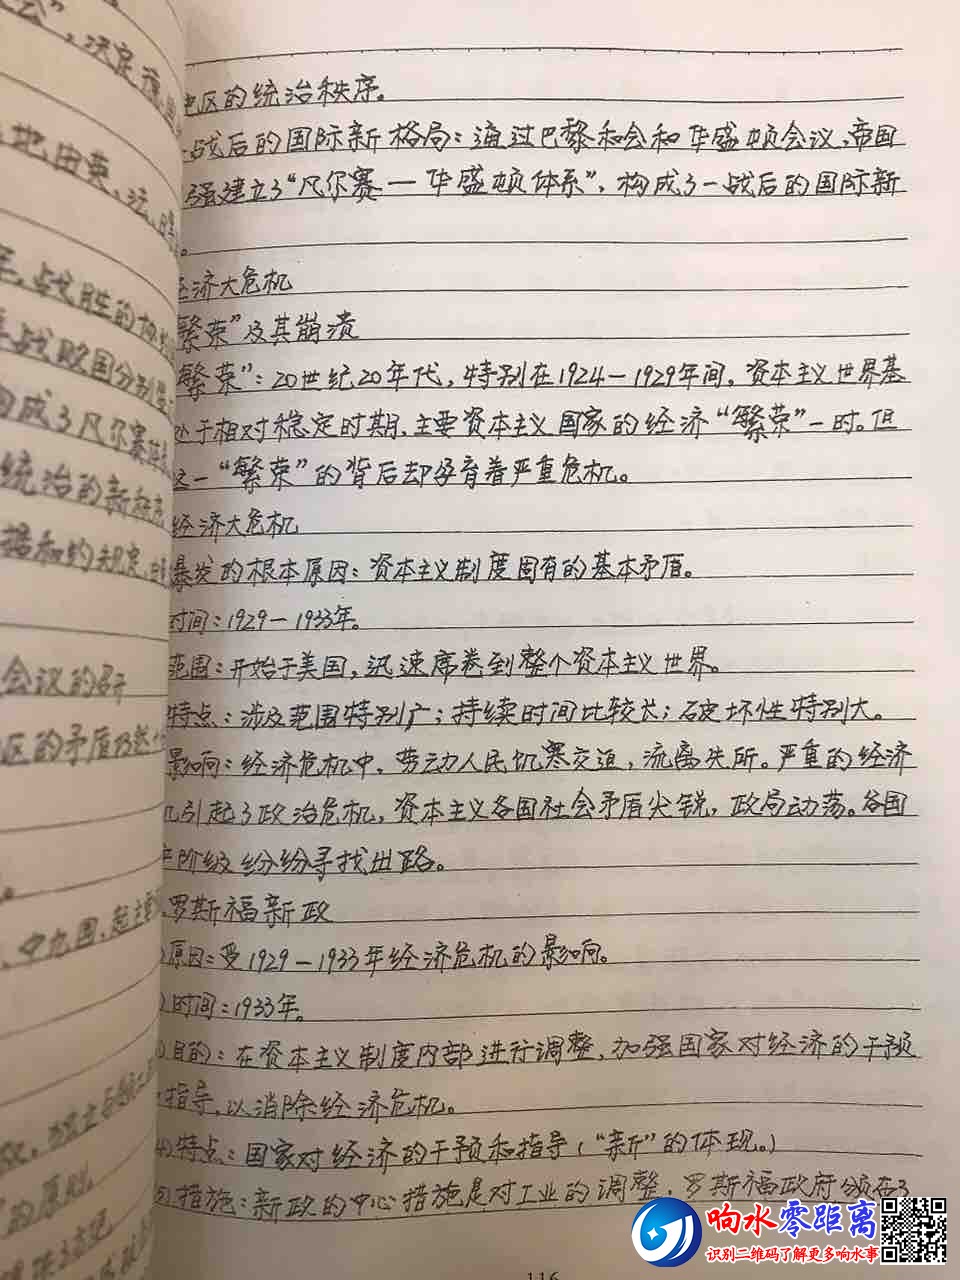 会”,决定
地,由英、法、
战胜的协
战败国分别
构成了凡尔赛体系
统治的新秩序
据和约规定,
会议的召开
区的矛盾
、中九国,起主
的原则
地区的统治秩序。
战后的国际新格局:通过巴黎和会和华盛顿会议,帝国
强建立了“凡尔赛—华盛顿体系”,构成了一战后的国际新
。
经济大危机
“繁荣”及其崩溃
“繁荣”:20世纪20年代,特别在1924—1929年间,资本主义世界基
处于相对稳定时期,主要资本主义国家的经济“繁荣”一时。但
这一“繁荣”的背后却孕育着严重危机。
经济大危机
暴发的根本原因:资本主义制度固有的基本矛盾。
时间:1929—1933年。
范围:开始于美国,迅速席卷到整个资本主义世界。
特点:涉及范围特别广;持续时间比较长;破坏性特别大。
影响:经济危机中,劳动人民饥寒交迫,流离失所。严重的经济
机引起了政治危机,资本主义各国社会矛盾尖锐,政局动荡。各国
产阶级纷纷寻找出路。
罗斯福新政
原因:受1929—1933年经济危机的影响。
)时间:1933年。
)目的:在资本主义制度内部进行调整,加强国家对经济的干预
指导,以消除经济危机。
(4)特点:国家对经济的干预和指导(“新”的体现。)
措施:新政的中心措施是对工业的调整,罗斯福政府颁布了
116
响水零距离
识别二维码了解更多响水事